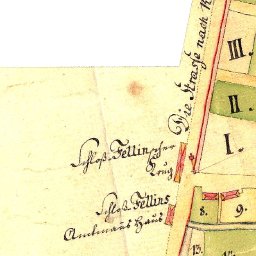 Die Strasse nach
III.
II.
I.
Schloss Fellinscher
Krug
Schloss Fellins
Amtmanns Haus
8.
9.
13.